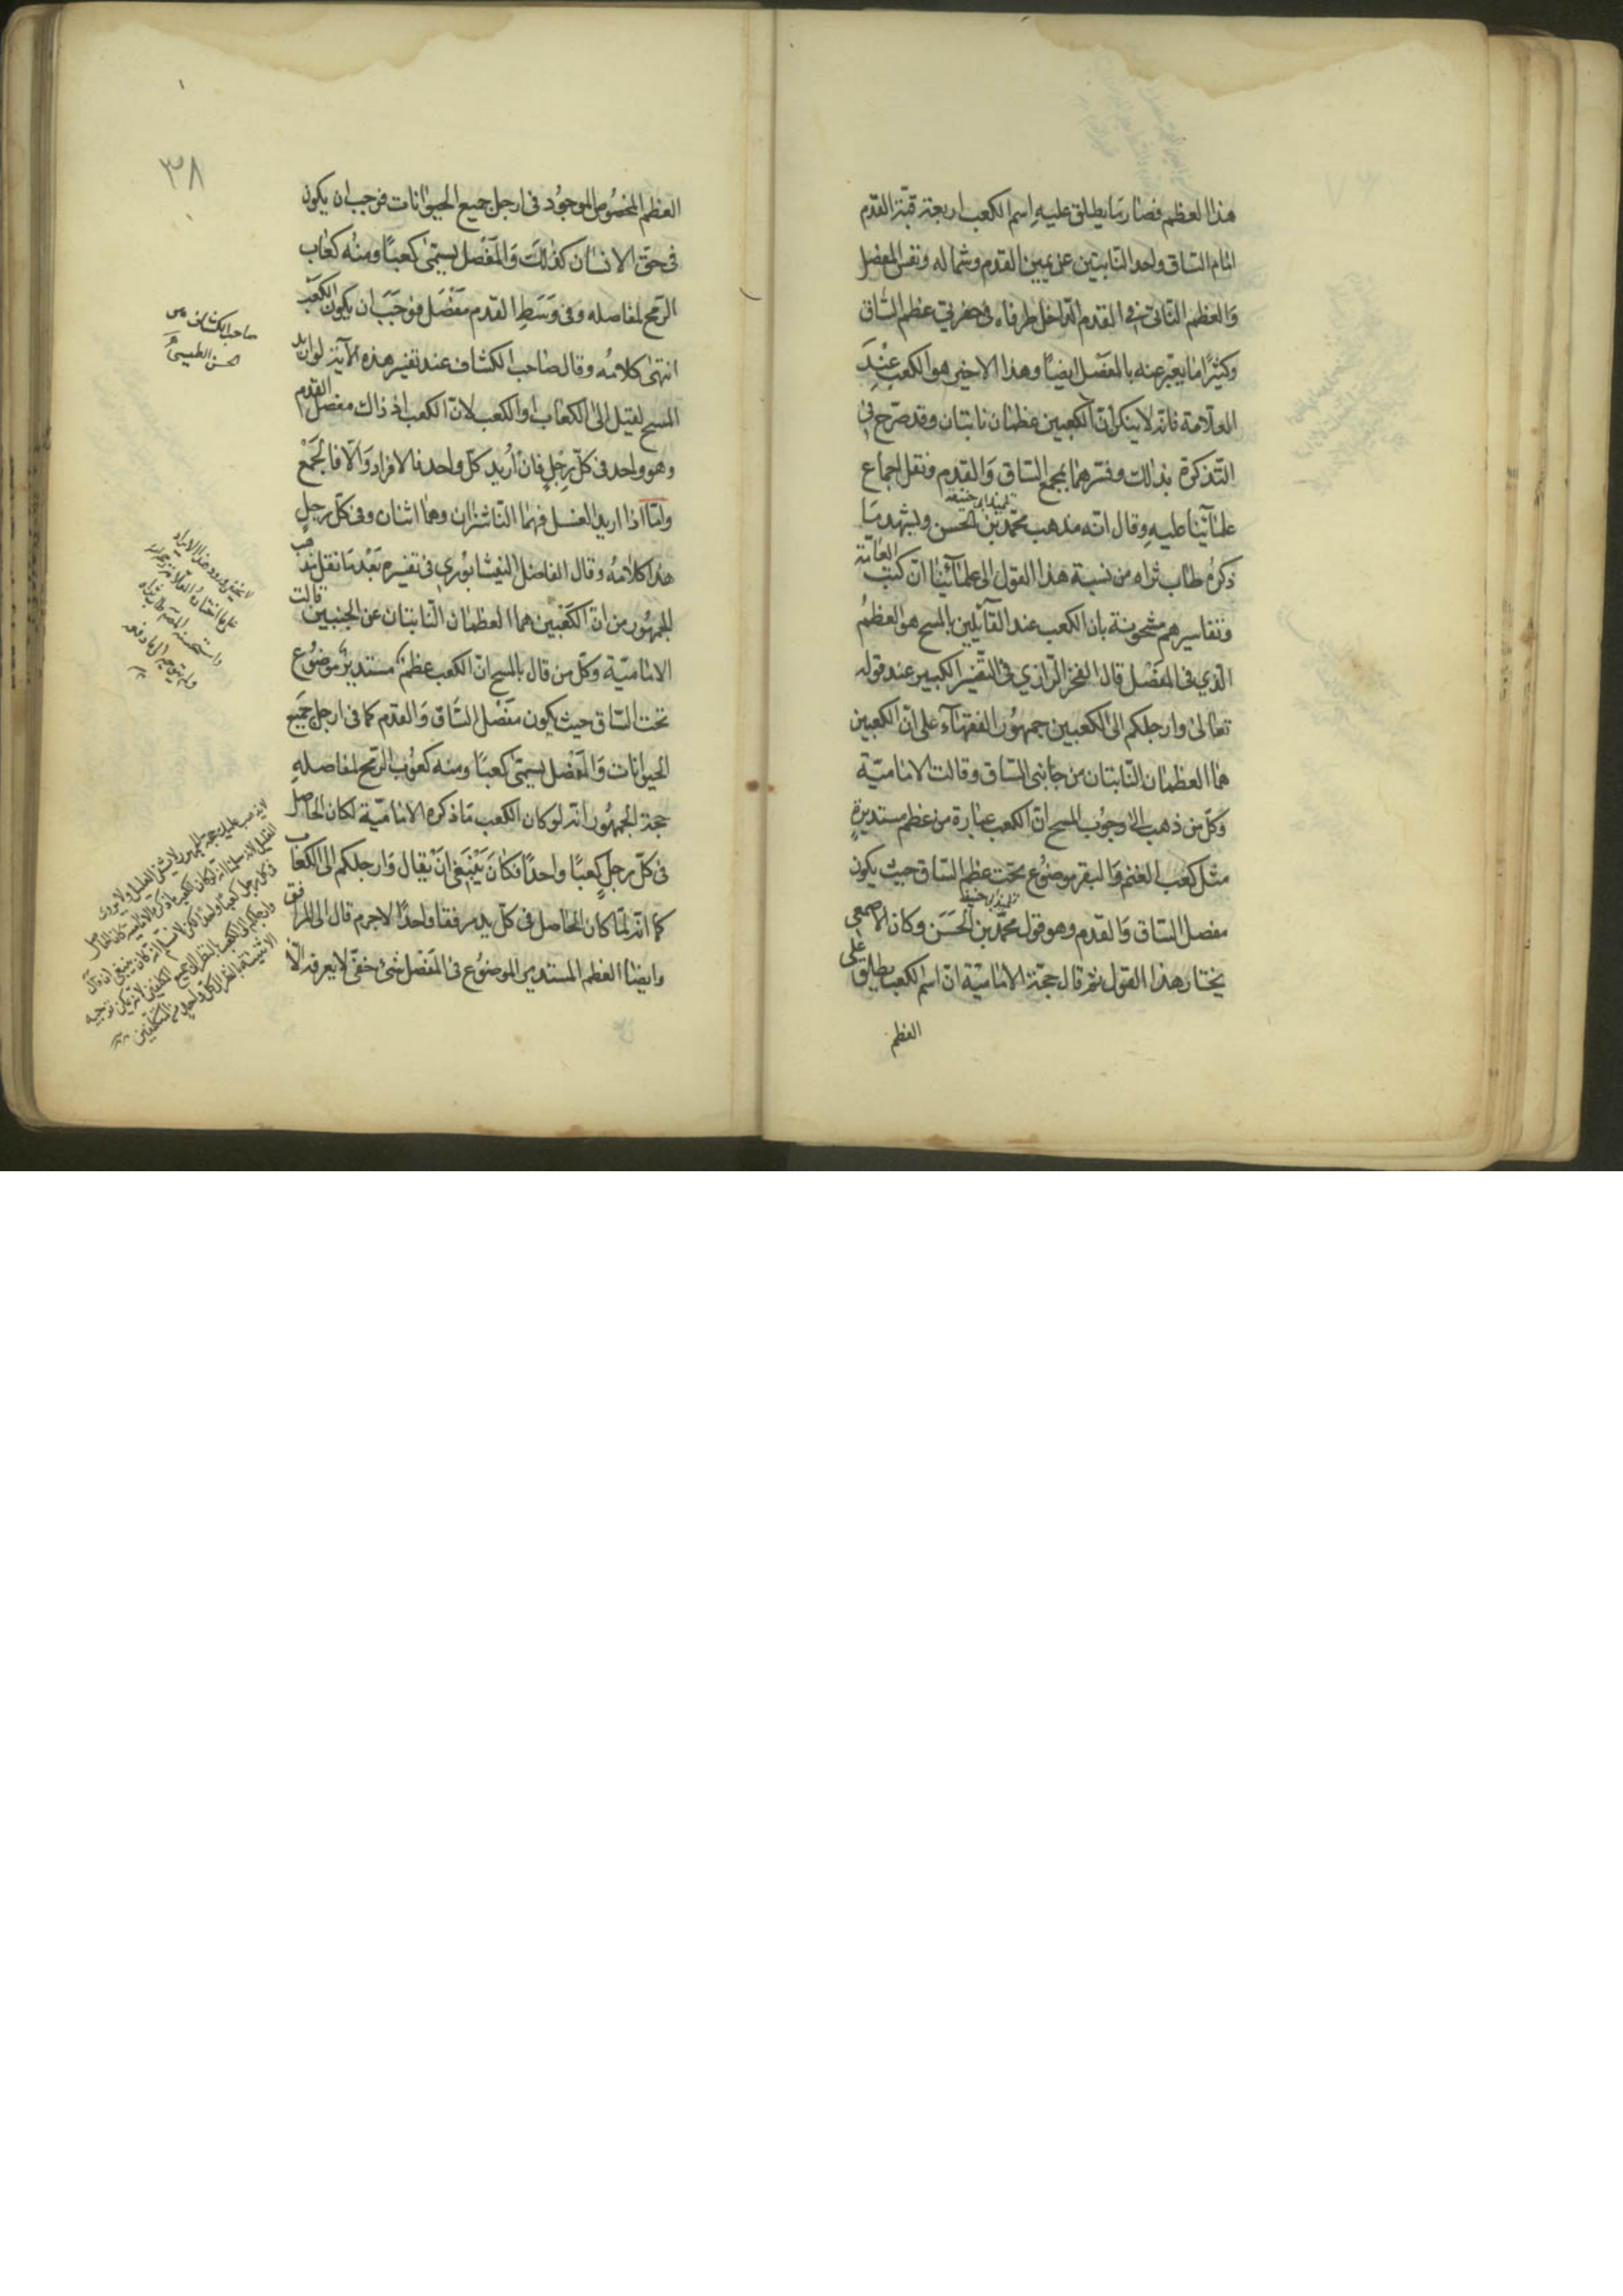 هذا العظم فصار ما يطلق عليه اسم الكعب اربعة قبة القدم
امام الساق واحد النابتين عن يمين القدم وشماله ونفس المفصل
والعظم الناتئ في القدم الداخل طرفاه في حفرتي عظم الساق
وكثيرًا ما يعبّر عنه بالمفصل ايضًا وهذا الاخير هو الكعب عند
العلامة فانه لا ينكر ان الكعبين عظمان نابتان وقد صرح في
التذكرة بذلك وفسرهما بمجمع الساق والقدم ونقل اجماع
علمآئنا عليه وقال انه مذهب محمد بن الحسن ويشهد بما
تلميذ ابي حنيفة
ذكره طاب ثراه من نسبة هذا القول الى علمآئنا ان كتب العامّة
وتفاسيرهم مشحونة بان الكعب عند القآئلين بالمسح هو العظم
الذي في المفصل قال الفخر الرازي في التفسير الكبير عند قوله
تعالى وارجلكم الى الكعبين جمهور الفقهآء على ان الكعبين
هما العظمان النابتان من جانبي الساق وقالت الامامية
وكل من ذهب الى وجوب المسح ان الكعب عبارة من عظم مستديرة
مثل كعب الغنم والبقر موضوع تحت عظم الساق حيث يكون
تلميذ ابي حنيفة
مفصل الساق والقدم وهو قول محمد بن الحسن وكان الاصمعي
يختار هذا القول ثم قال حجة الامامية ان اسم الكعب يطلق على
العظم
٣٨
العظم المخصوص الموجود في ارجل جميع الحيوانات فوجب ان يكون
في حق الانسان كذلك والمفصل يسمى كعبًا ومنه كعاب
الرمح لمفاصله وفي وسط القدم مفصل فوجب ان يكون الكعب
انتهى كلامه وقال صاحب الكشاف عند تفسير هذه الآية لو اريد
المسح لقيل الى الكعاب او الكعب لان الكعب اذ ذاك مفصل القدم
وهو واحد في كل رجل فان أريد كل واحد فالافراد والا فالجمع
وامّا اذا اريد الغسل فهما الناشزان وهما اثنان في كل رجل
هذا كلامه وقال الفاضل النيشابوري في تفسيره بعد ما نقل مذهب
الجمهور من ان الكعبين هما العظمان النابتان عن الجنبين قالت
الامامية وكل من قال بالمسح ان الكعب عظم مستدير موضوع
تحت الساق حيث يكون مفصل الساق والقدم كما في ارجل جميع
الحيوانات والمفصل يسمى كعبًا ومنه كعوب الرمح لمفاصله
حجة الجمهور انه لو كان الكعب ما ذكره الامامية لكان الحاصل
في كل رجل كعبًا واحدًا فكان ينبغي ان يقال وارجلكم الى الكعاب
كما انه لما كان الحاصل في كل يد مرفقا واحدًا لاجرم قال الى المرافق
وايضا العظم المستدير الموضوع في المفصل شئ خفي لا يعرفه الا
صاحب الكشاف